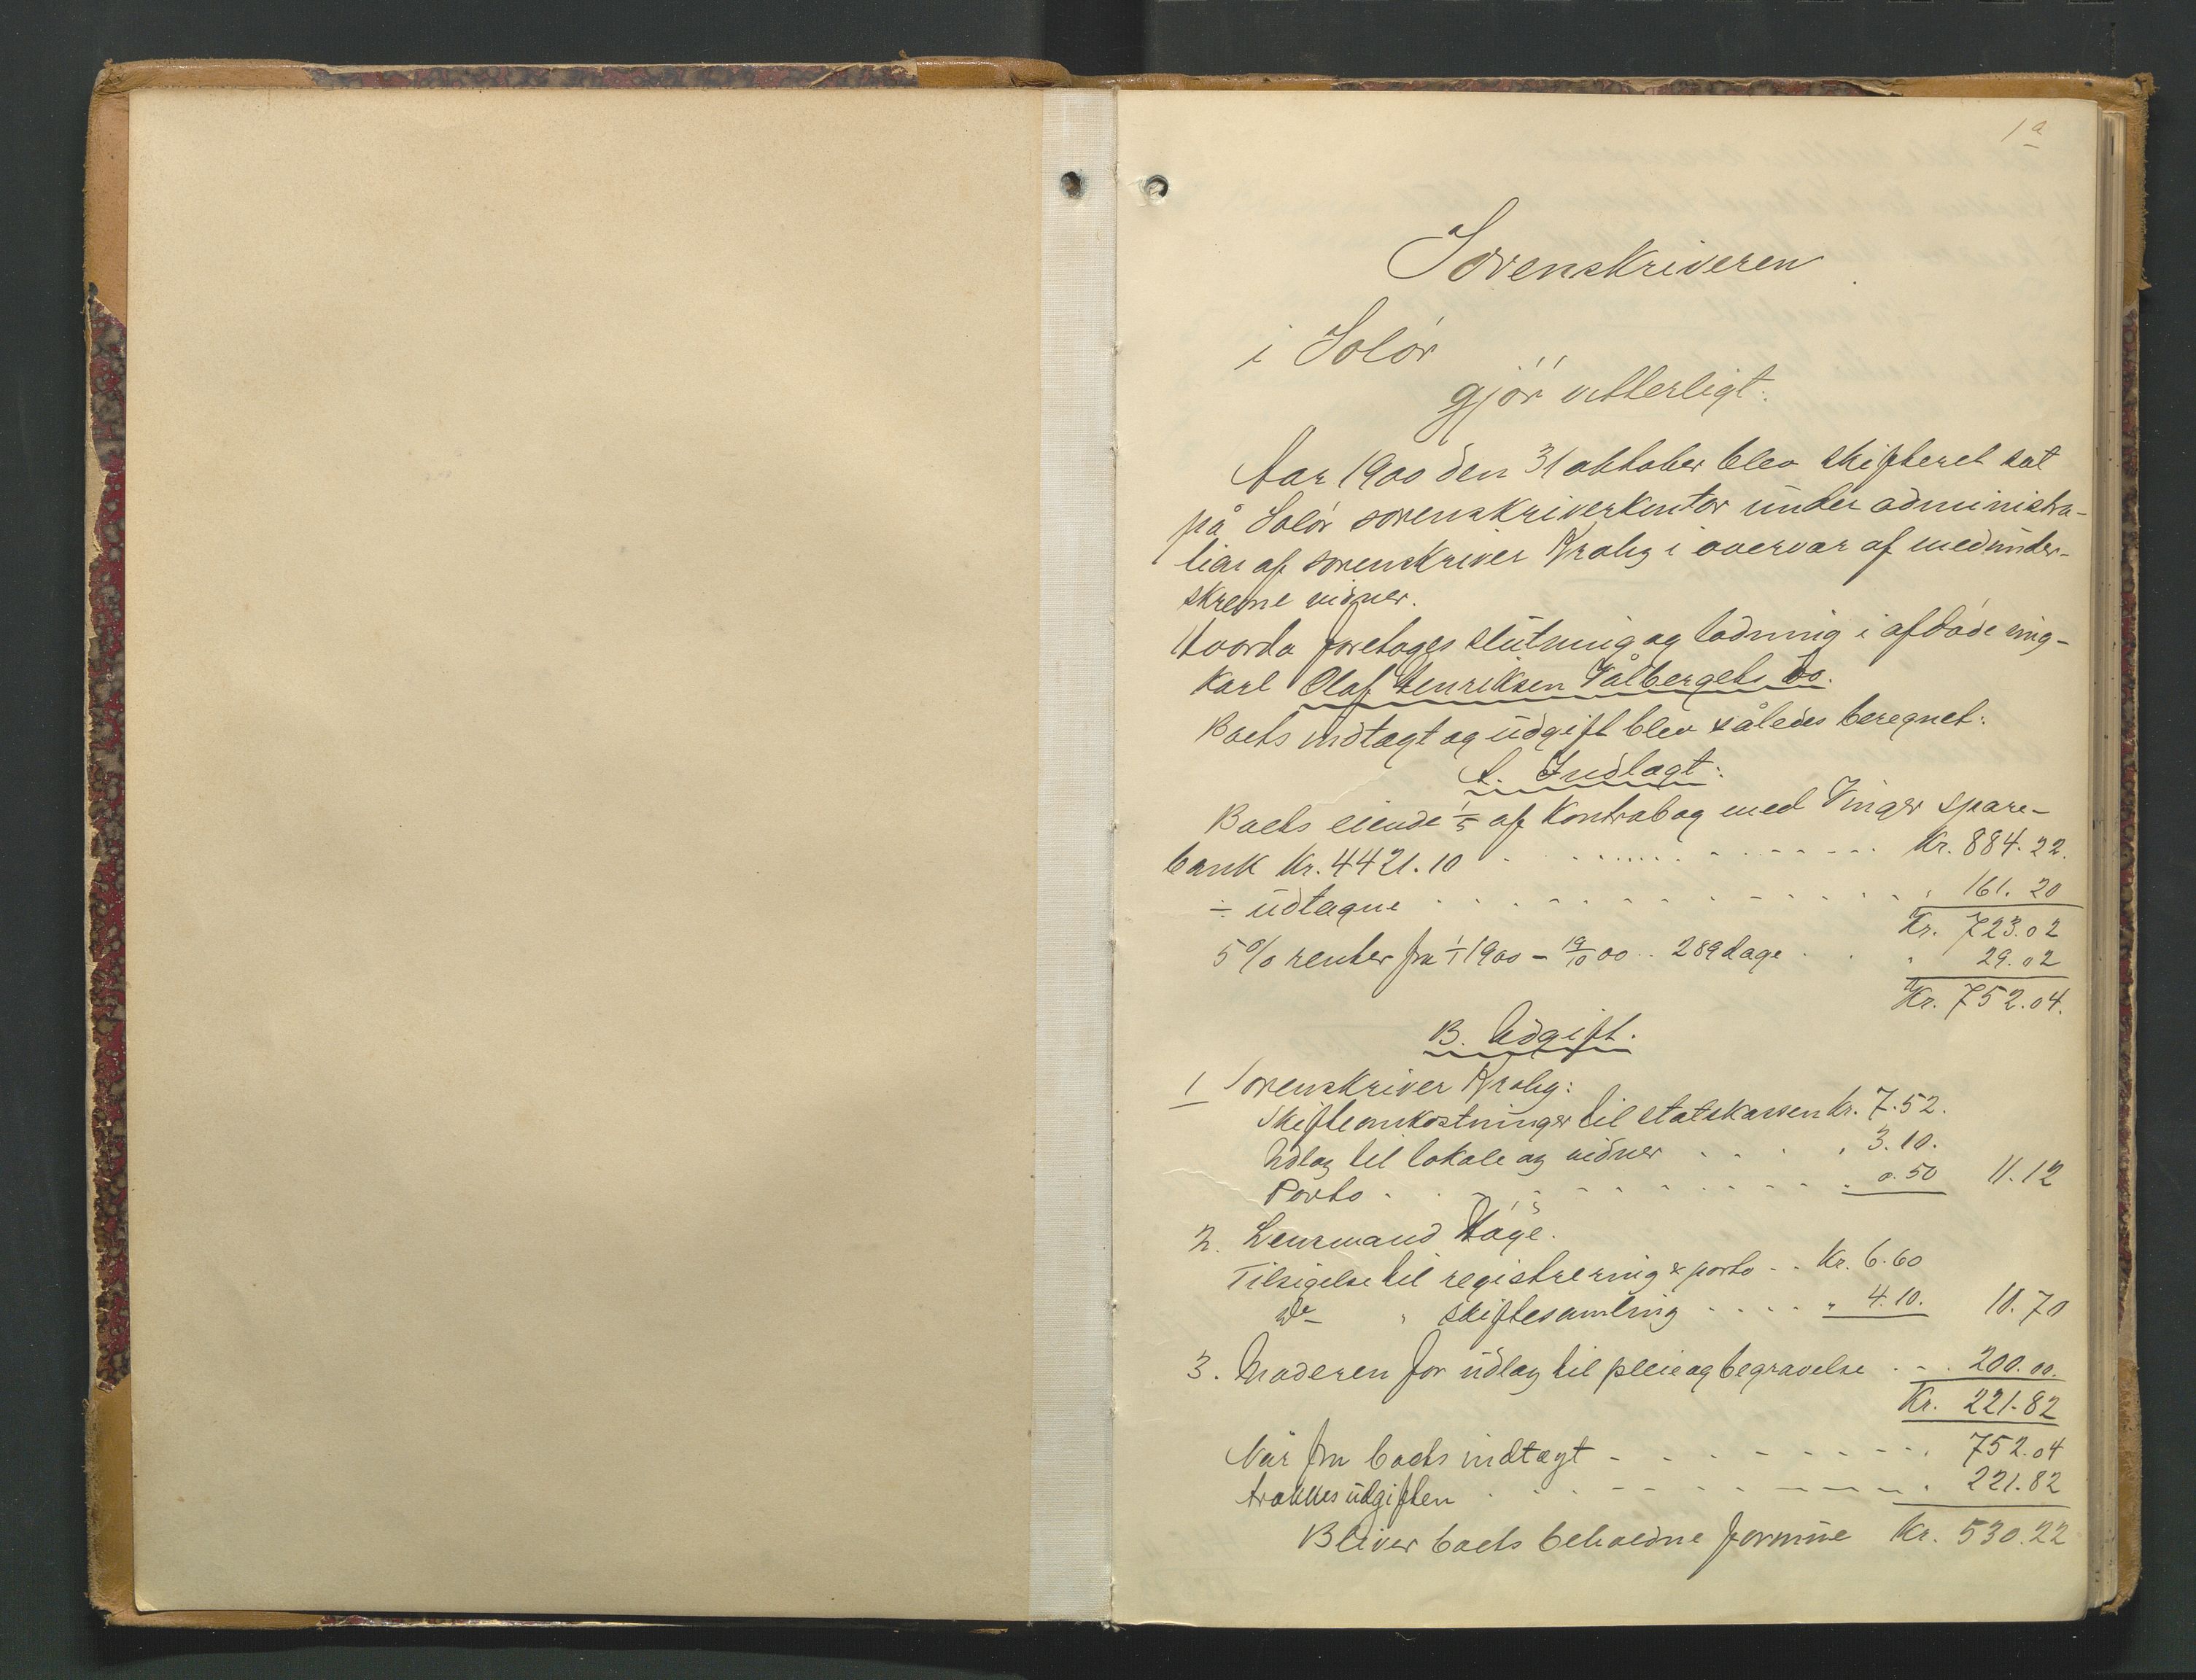 1a
Sorenskriveren
i Solør
gjør vitterligt:
Aar 1900 den 31 oktober blev skifteret sat
på Solør sorenskriverkontor under administra-
tion af sorenskriver Krohg i overvær af medunder-
skrevne vidner.
Hvorda foretoges slutning og lodning i afdøde ung-
karl Olaf Henriksen Vålbergets bo.
Boets indtægt og udgift blev således beregnet:
A. Indtægt:
Boets eiende 1/5 af kontrabog med Vinger spare-
bank Kr. 4421.10 . . . . . . . Kr. 884.22.
÷ udtagne . . . . . . . " 161.20
Kr. 723.02
5% renter fra 1/1 1900 - 19/10 00 .. 289 dage . . " 29.02
Kr. 752.04.
B. Udgift.
1 Sorenskriver Krohg:
Skifteomkostninger til statskassen Kr. 7.52.
Udlæg til lokale og vidner . . . " 3.10.
Porto . . . . . . . " 0.50 11.12
2. Lensmand Høge.
Tilsigelse til registrering & porto . . Kr. 6.60
do " skiftesamling . . . . " 4.10. 10.70
3. Moderen for udlæg til pleie og begravelse . . . 200.00.
Kr. 221.82
Når fra boets indtægt . . . . . . . 752.04
trækkes udgiften . . . . . . . " 221.82
Bliver boets beholdne formue Kr. 530.22